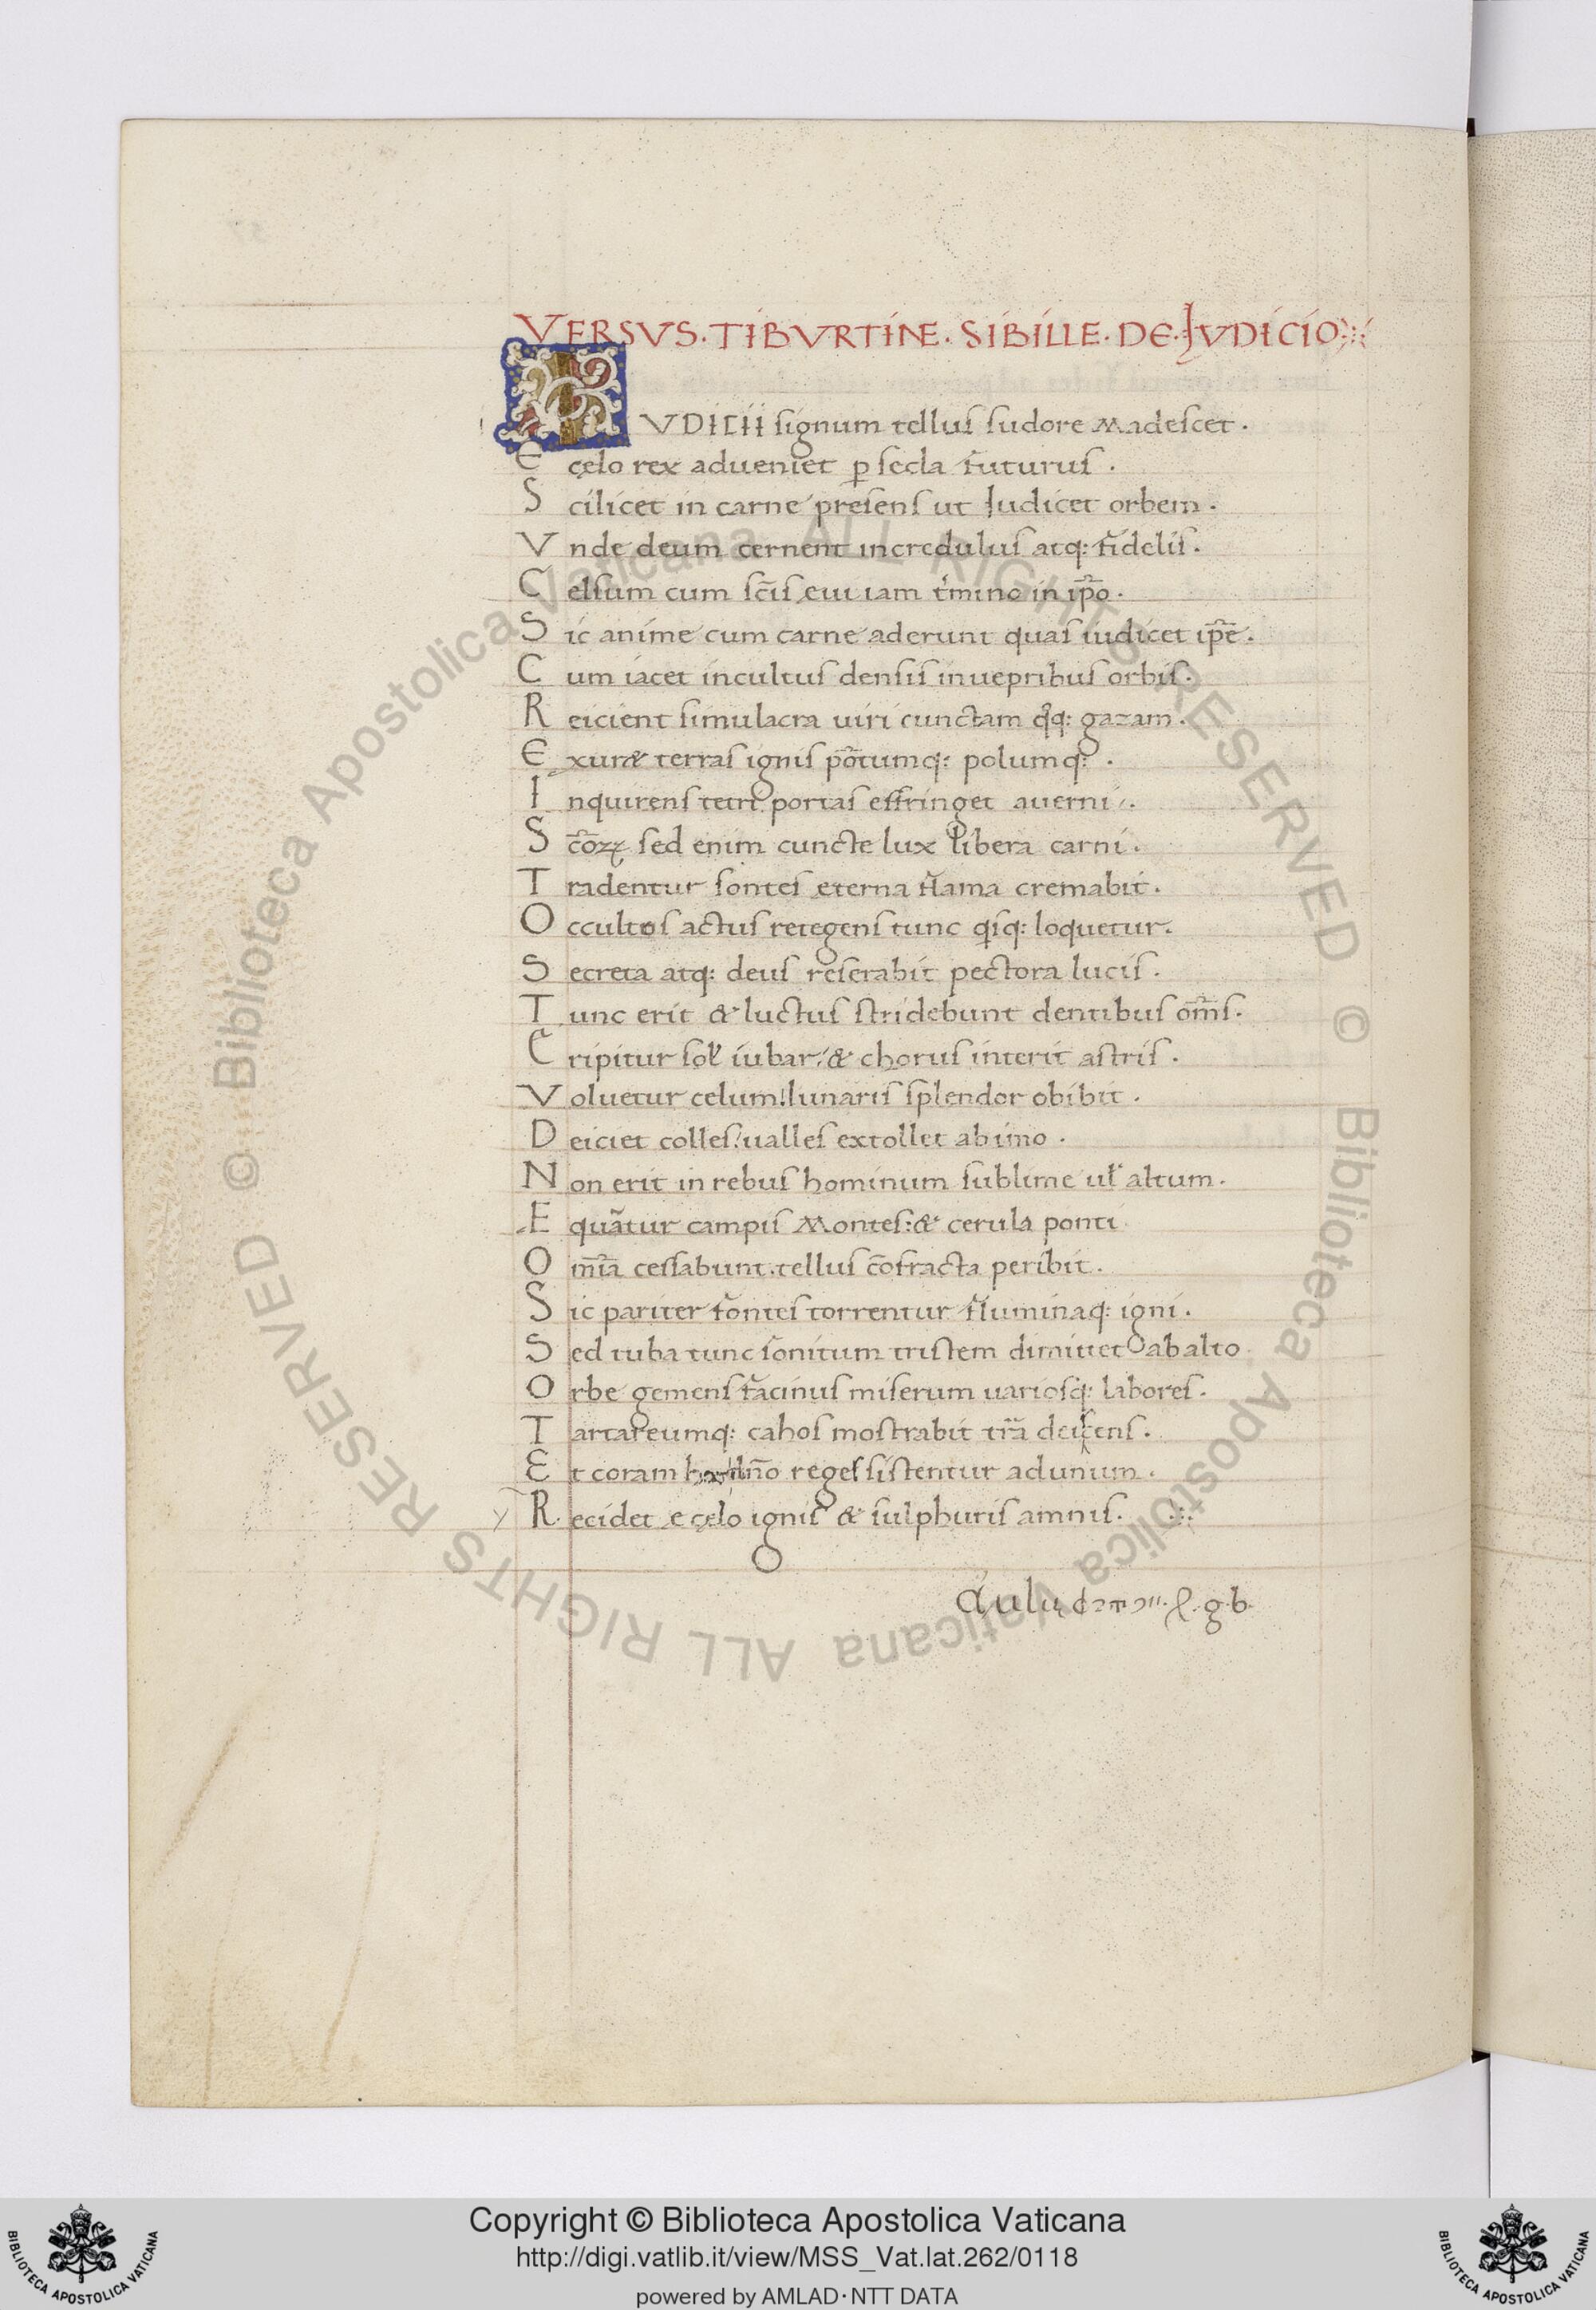 VERSVS·TIBVRTINE·SIBILLE·DE·IVDICIO
IVDICII signum tellus sudore Madescet·
E celo rex adueniet ꝑ secla futurus·
S cilicet in carne presens ut Iudicet orbem·
V nde deum cernent incredulus atq: fidelis·
C elsum cum sc̄is eui iam t'mino in ip̄o·
S ic anime cum carne aderunt quas iudicet ip̄e·
C um iacet incultus densis in uepribus orbis·
R eicient simulacra uiri cunctam q̊q: gazam·
E xuret terras ignis pōtumq: polumq:·
I nquirens tetri portas effringet auerni·
S c̄oꝝ sed enim cuncte lux libera carni·
T radentur sontes eterna flama cremabit·
O ccultos actus retegens tunc qisq: loquetur·
S ecreta atq: deus reserabit pectora lucis·
T unc erit & luctus stridebunt dentibus om̄s·
E ripitur sol' iubar:& chorus interit astris·
V oluetur celum:lunaris splendor obibit·
D eiciet colles:ualles extollet ab imo·
N on erit in rebus hominum sublime ul' altum·
E quātur campis Montes:& cerula ponti
O m̄ia cessabunt:tellus cōfracta peribit·
S ic pariter fontes torrentur fluminaq: igni·
S ed tuba tunc sonitum tristem dimittet ab alto·
O rbe gemens facinus miserum uariosq: labores·
T artareumq: cahos mostrabit tr̄a deiscens·
E t coram dn̄o reges sistentur adunum·
R ecidet e celo ignis & sulphuris amnis·
Biblioteca Apostolica Vaticana ALL RIGHTS RESERVED ©
Biblioteca Apostolica Vaticana ALL RIGHTS RESERVED ©
Copyright © Biblioteca Apostolica Vaticana
http://digi.vatlib.it/view/MSS_Vat.lat.262/0118
powered by AMLAD·NTT DATA
BIBLIOTECA APOSTOLICA VATICANA
BIBLIOTECA APOSTOLICA VATICANA